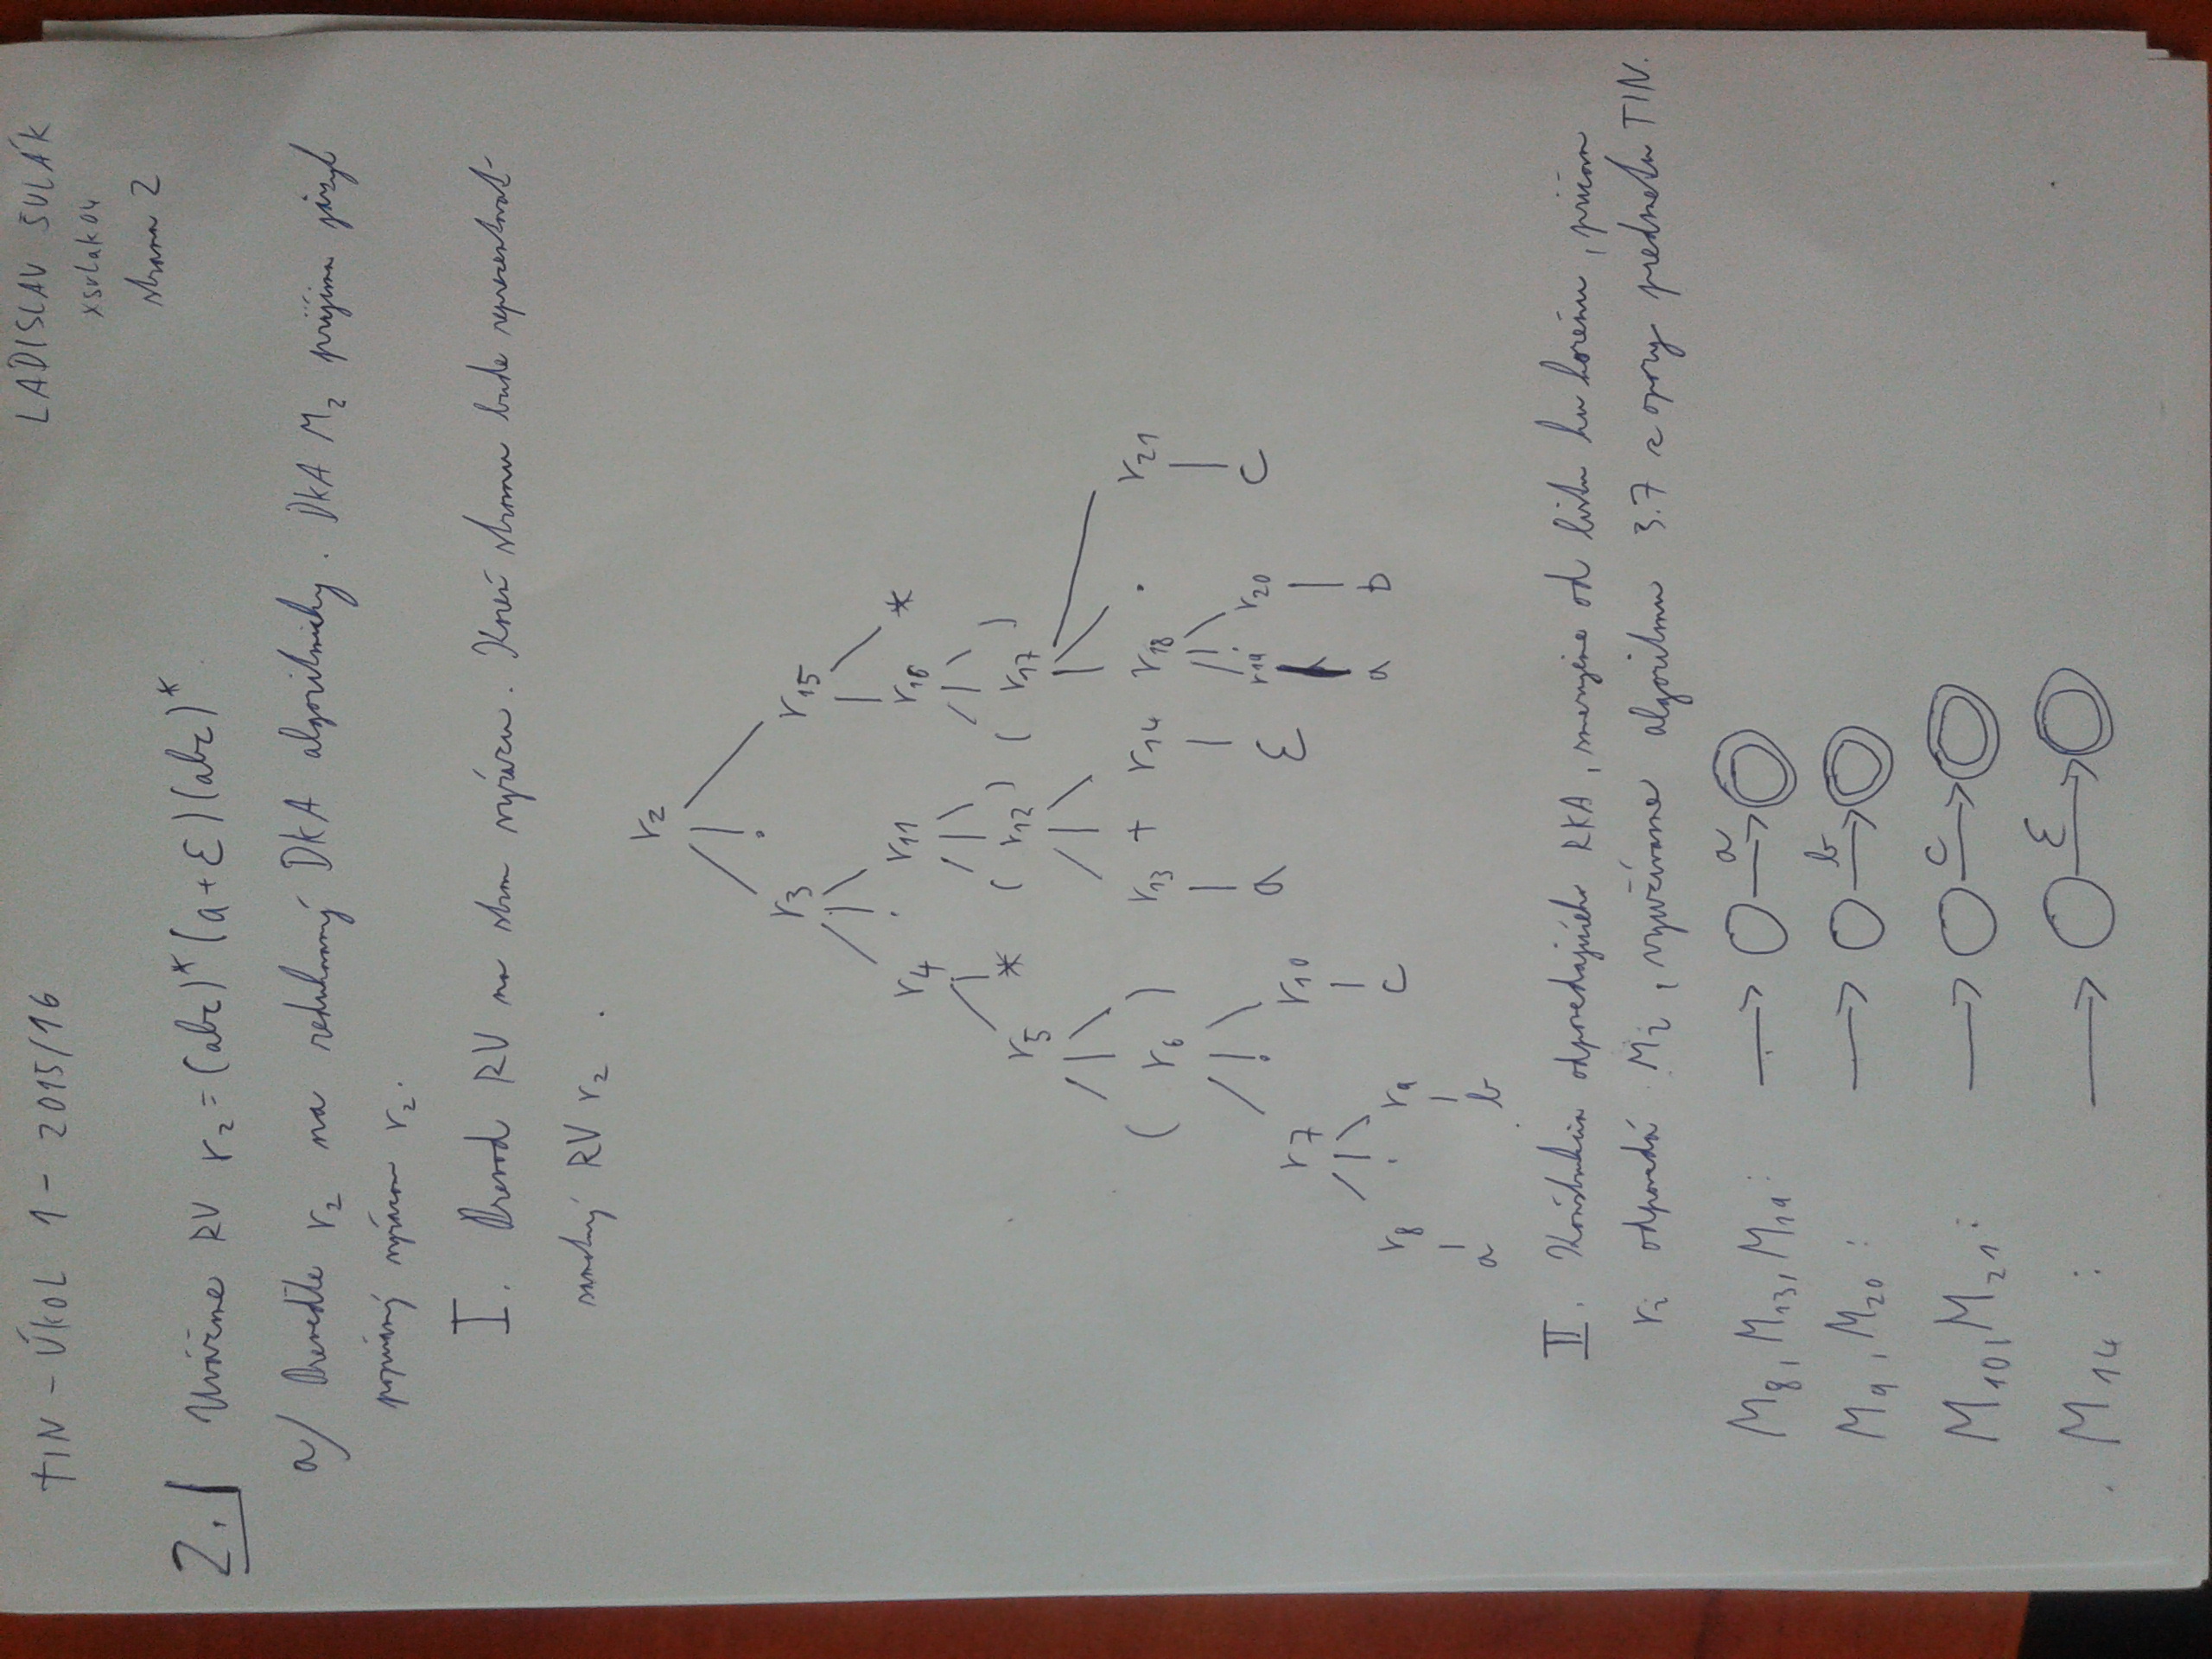 TIN - ÚKOL 1 - 2015/16
LADISLAV ŠULÁK
xsulak04
strana 2
2. Uvážme RV r₂ = (abc)* (a+ε)(abc)*
a) Preveďte r₂ na redukovaný DKA algoritmicky. DKA M₂ prijíma jazyk
popísaný výrazom r₂.
I. Prevod RV na strom výrazu. Koreň stromu bude reprezentovať
samotný RV r₂.
r₂
.
r₃ r₁₅
r₄ . r₁₁ r₁₆ *
r₅ * ( r₁₂ ) ( r₁₇ )
( r₆ ) r₁₃ + r₁₄ r₁₈ . r₂₁
. a ε r₁₉ . r₂₀ c
r₇ r₁₀
r₈ . r₉ c a b
a b
II. Konštrukcia odpovedajúceho RKA, smerujeme od listu ku koreňu, pričom
rᵢ odpovedá Mᵢ, využívame algoritmu 3.7 z opory predmetu TIN.
M₈, M₁₃, M₁₉: a
M₉, M₂₀: b
M₁₀, M₂₁: c
M₁₄: ε